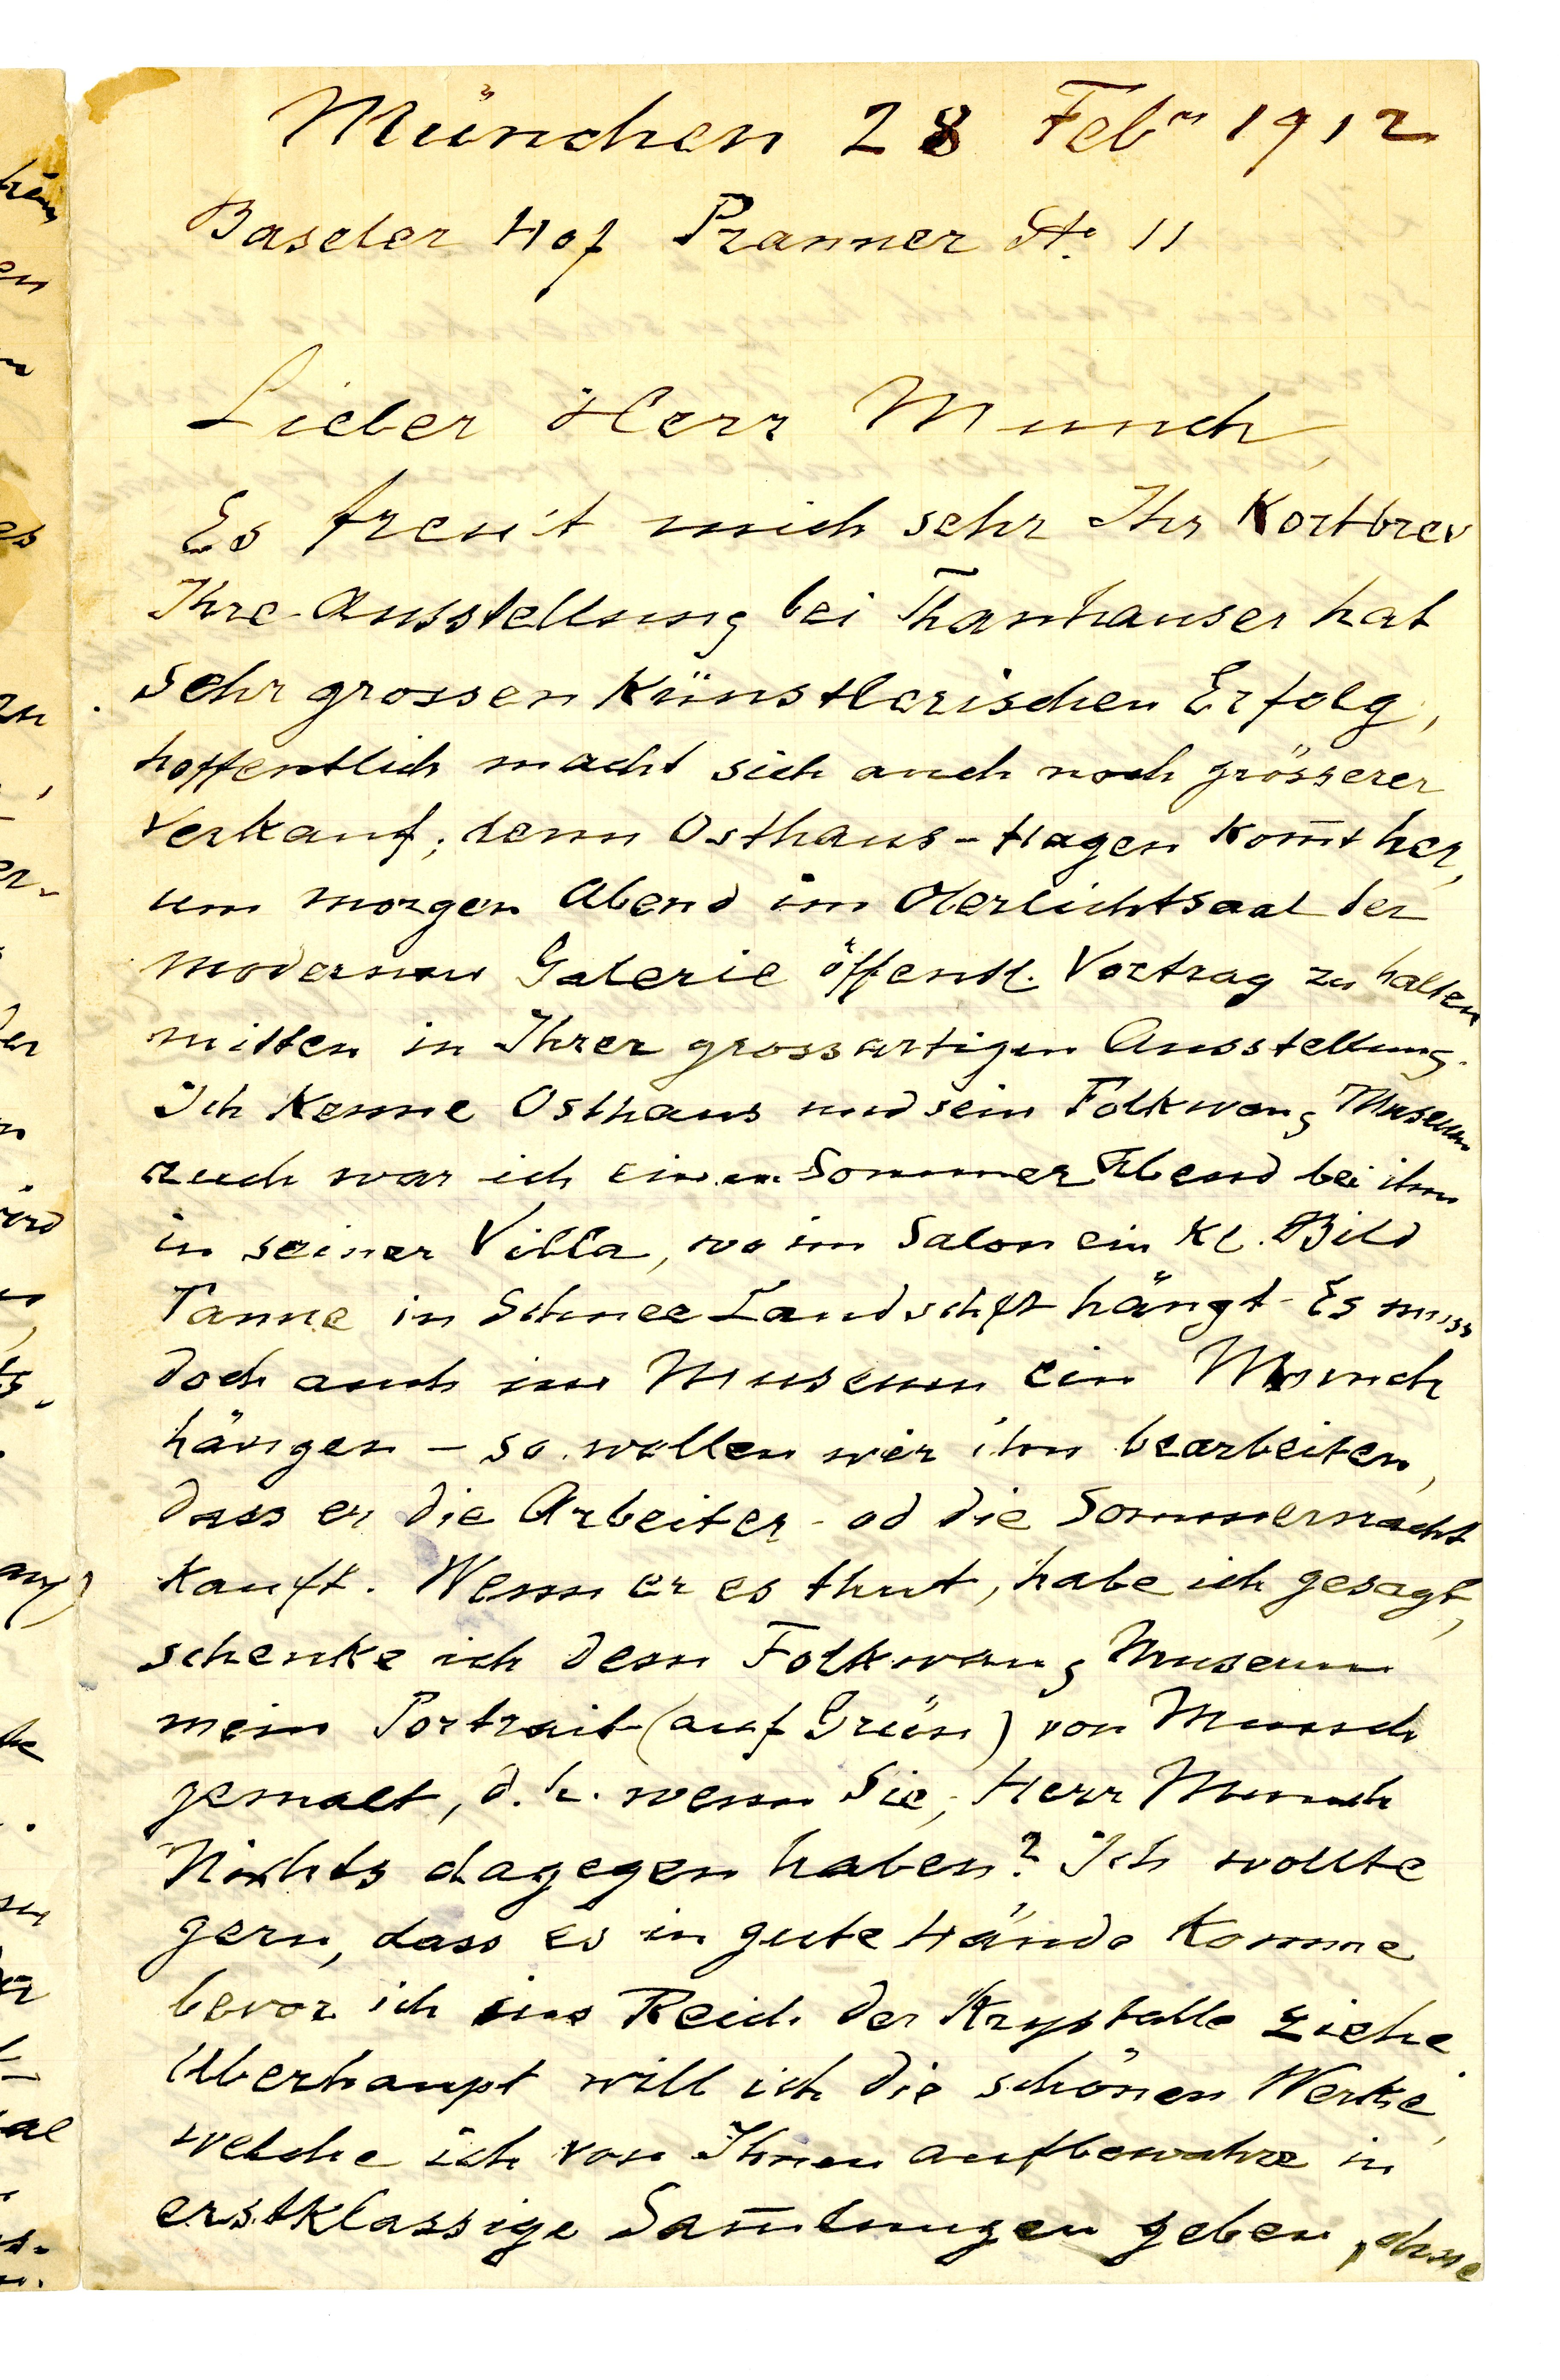 München 28 Febr 1912
Baseler Hof Pranner St. 11
Lieber Herr Munch,
Es freu't mich sehr Ihr Kortbrev
Ihre Ausstellung bei Thanhauser hat
sehr grossen Künstlerischen Erfolg,
hoffentlich macht sich auch noch grösserer
Verkauf; denn Osthaus-Hagen kom̅t her,
um morgen Abend im Oberlichtsaal der
modernen Galerie öffentl. Vortrag zu halten
mitten in Ihrer grossartigen Ausstellung.
Ich Kenne Osthaus und sein Folkwang Museum
auch war ich einen Sommer Abend bei ihm
in seiner Villa, wo im Salon ein Kl. Bild
Tanne in Schnee Landschft hängt - Es muss
doch auch im Museum ein Munch
hängen – so wollen wir ihn bearbeiten,
dass er die Arbeiter - od die Sommernacht
kauft. Wenn er es thut, habe ich gesagt,
schenke ich dem Folkwang Museum
mein Portrait (auf Grün) von Munch
gemalt, d.h. wenn Sie, Herr Munch
Nichts dagegen haben? Ich wollte
gern, dass es in gute Hände Komme
bevor ich ins Reich der Krystalle ziehe.
Uberhaupt will ich die schönen Werke,
welche ich von Ihnen aufbewahre in
erstklassige Sam̅lungen geben, ohne